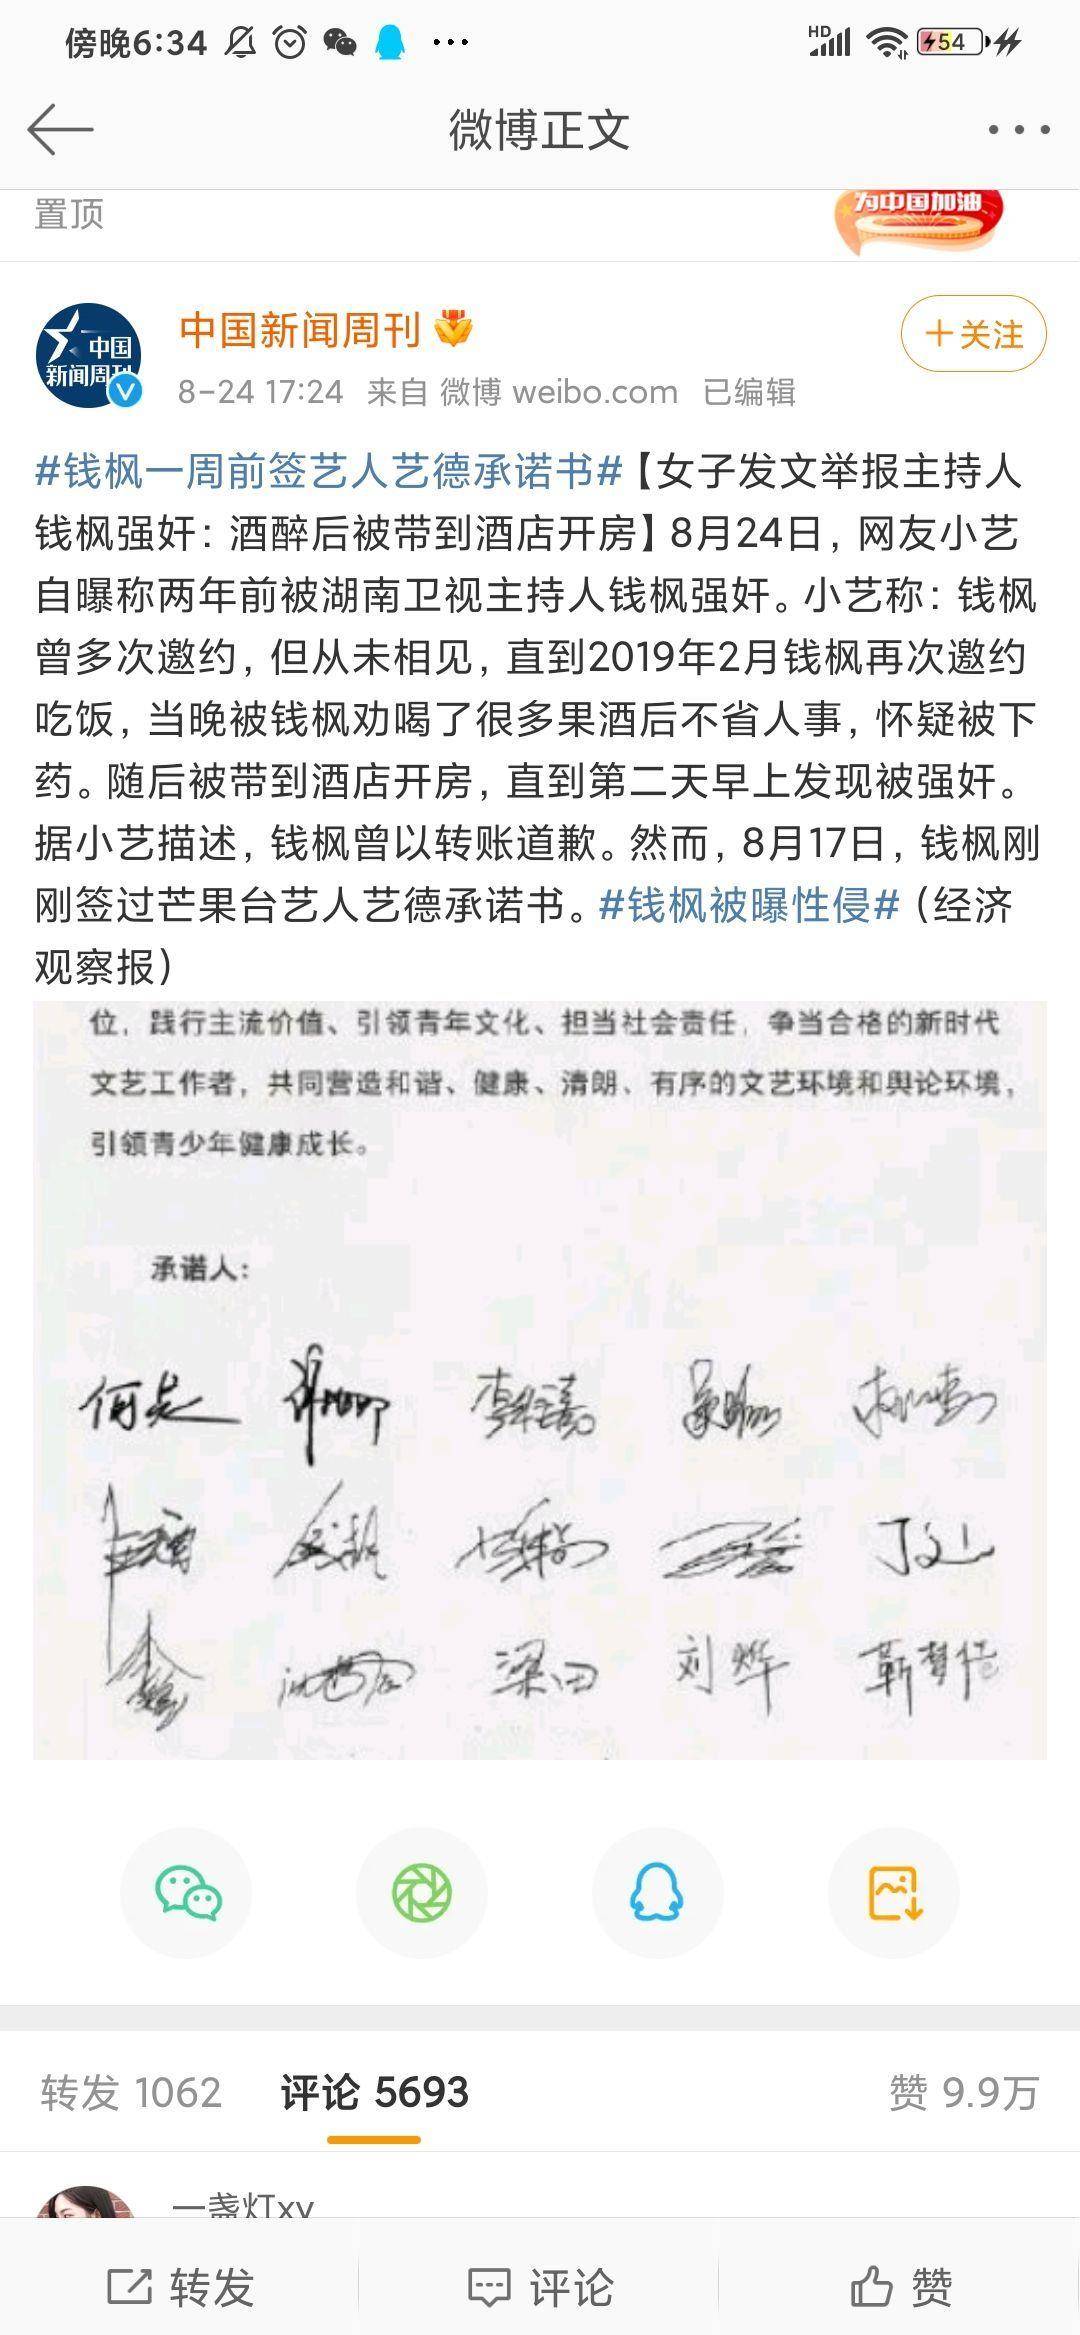 傍晚6:34
HD
54
微博正文
置顶
为中国加油
中国
新闻周刊
中国新闻周刊
+关注
8-24 17:24 来自 微博 weibo.com 已编辑
#钱枫一周前签艺人艺德承诺书#【女子发文举报主持人
钱枫强奸：酒醉后被带到酒店开房】8月24日，网友小艺
自曝称两年前被湖南卫视主持人钱枫强奸。小艺称：钱枫
曾多次邀约，但从未相见，直到2019年2月钱枫再次邀约
吃饭，当晚被钱枫劝喝了很多果酒后不省人事，怀疑被下
药。随后被带到酒店开房，直到第二天早上发现被强奸。
据小艺描述，钱枫曾以转账道歉。然而，8月17日，钱枫刚
刚签过芒果台艺人艺德承诺书。#钱枫被曝性侵#（经济
观察报）
位，践行主流价值、引领青年文化、担当社会责任，争当合格的新时代
文艺工作者，共同营造和谐、健康、清朗、有序的文艺环境和舆论环境，
引领青少年健康成长。
承诺人：
何炅
丁文山
梁田 刘烨 靳梦佳
转发 1062 评论 5693 赞 9.9万
一盏灯xy
转发 评论 赞